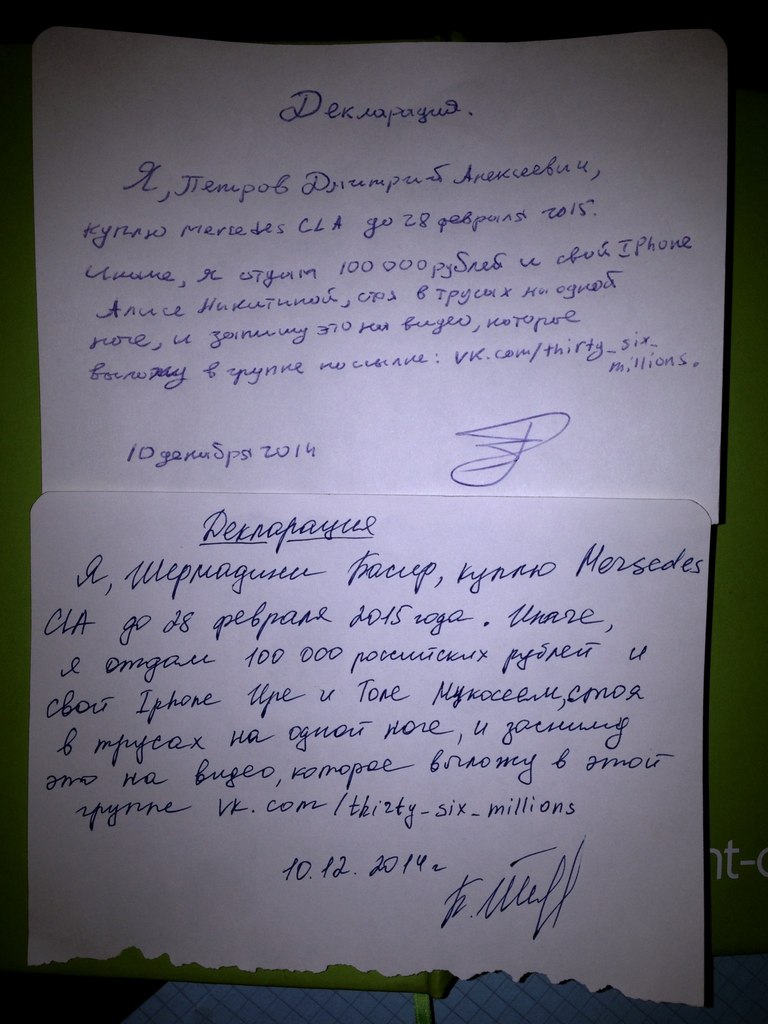 Декларация.
Я, Петров Дмитрий Алексеевич,
куплю Mersedes CLA до 28 февраля 2015.
Иначе, я отдам 100 000 рублей и свой IPhone
Алисе Никитиной, стоя в трусах на одной
ноге, и запишу это на видео, которое
выложу в группе по ссылке: vk.com/thirty_six_
millions.
10 декабря 2014
Декларация
Я, Шермадини Басир, куплю Mersedes
CLA до 28 февраля 2015 года. Иначе,
я отдам 100 000 российских рублей и
свой Iphone Ире и Толе Мукосеем, стоя
в трусах на одной ноге, и засниму
это на видео, которое выложу в этой
группе vk.com/thirty_six_millions
10.12.2014 г
nt-c